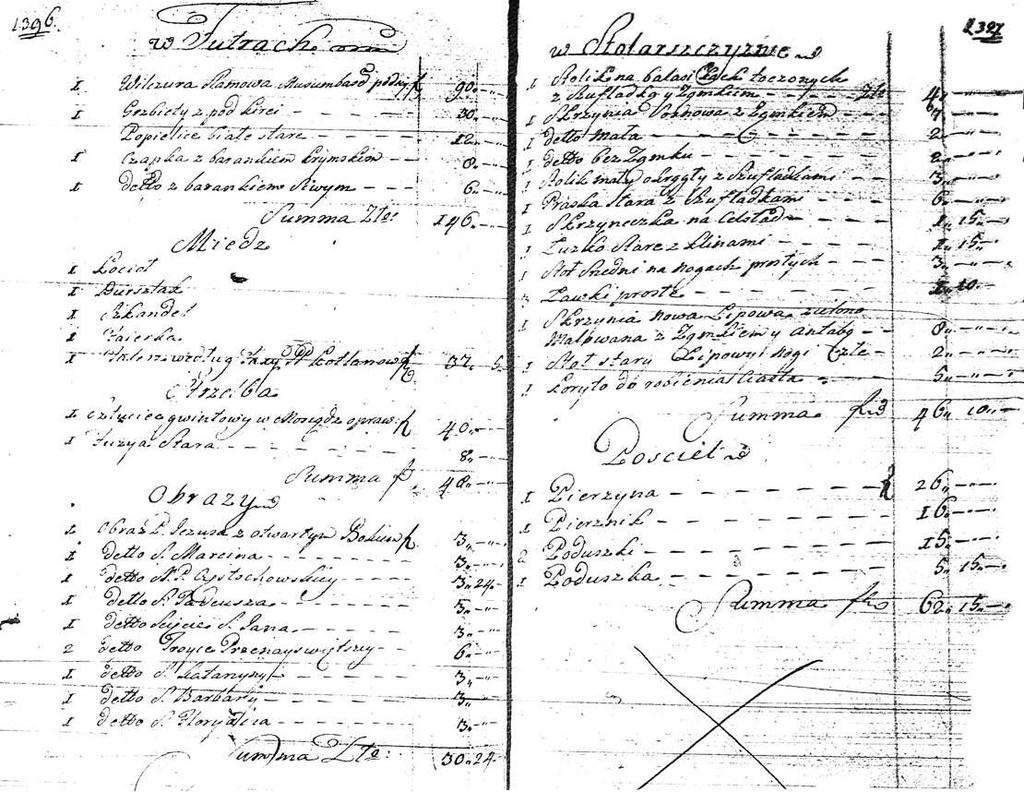 1396.
w Futrach
1 Wilczura Slamowa Musumbasd podszy f 90.
1 Grzbiety z pod kirei 30.
Popielice białe stare 12.
1 Czapka z barankiem krymskim 8.
1 detto z barankiem Siwym 6.
Summa Zło: 146.
Miedz
1 Kocioł
1 Dursztak
1 Szkandeł
1 Faierka
1 według Taxy kotlarowey f 37. 5
Strzelba
1 Sztuciec gwintowy w Mosiądz opraw. f 40.
1 Fuzya Stara 8.
Summa f. 48.
Obrazy
1 Obraz P. Jezusa z otwartym Bokiem f 3.
1 detto S. Marcina 3.
1 detto N. P. Częstochowskiey 3. 24.
1 detto S. Tadeusza 3.
1 detto Scięcie S. Jana 3.
2 detto Troyce Przenayswiętszey 6.
1 detto S. Katarzyny 3.
1 detto S. Barbary 3.
1 detto S. Floryana 3.
Summa Zło: 30. 24.
1397
w Stolarszczyznie
1 Stolik na balasikach toczonych
z Szufladką y Zamkiem Zło 4.
1 Skrzynia Sosnowa z Zamkiem
1 detto mała 2.
1 detto bez Zamku 2.
1 Stolik mały okrągły z Szufladkami 3.
1 Praska Stara z Szufladkami 6.
1 Skrzyneczka na Czeladz 1. 15.
1 Łuzko Stare z klinami 1. 15.
1 Stoł Sredni na nogach prostych 3.
Ławki proste 1. 10.
1 Skrzynia nowa Lipowa zielono
Malowana z Zamkiem y antabą 8.
1 Stoł stary Lipowy Nogi Złe 2.
1 Koryto do robienia Ciasta 5.
Summa f. 46. 10.
Posciel
1 Pierzyna f 26.
1 Piernik 16.
2 Poduszki 15.
1 Poduszka 5. 15.
Summa f. 62. 15.